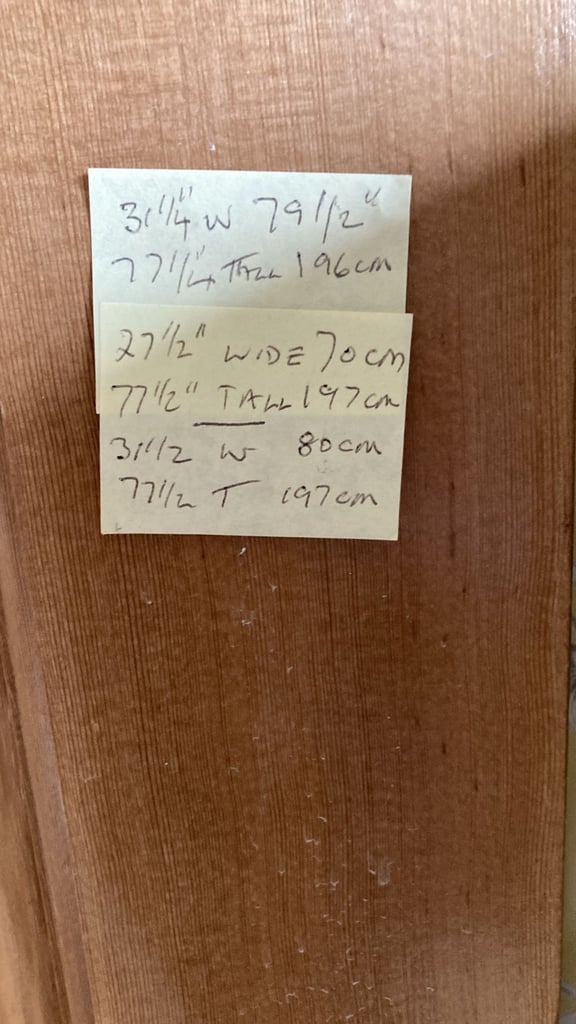 31 1/4" W 79 1/2"
77 1/4" TALL 196cm
27 1/2" WIDE 70cm
77 1/2" TALL 197cm
31 1/2 W 80cm
77 1/2 T 197cm